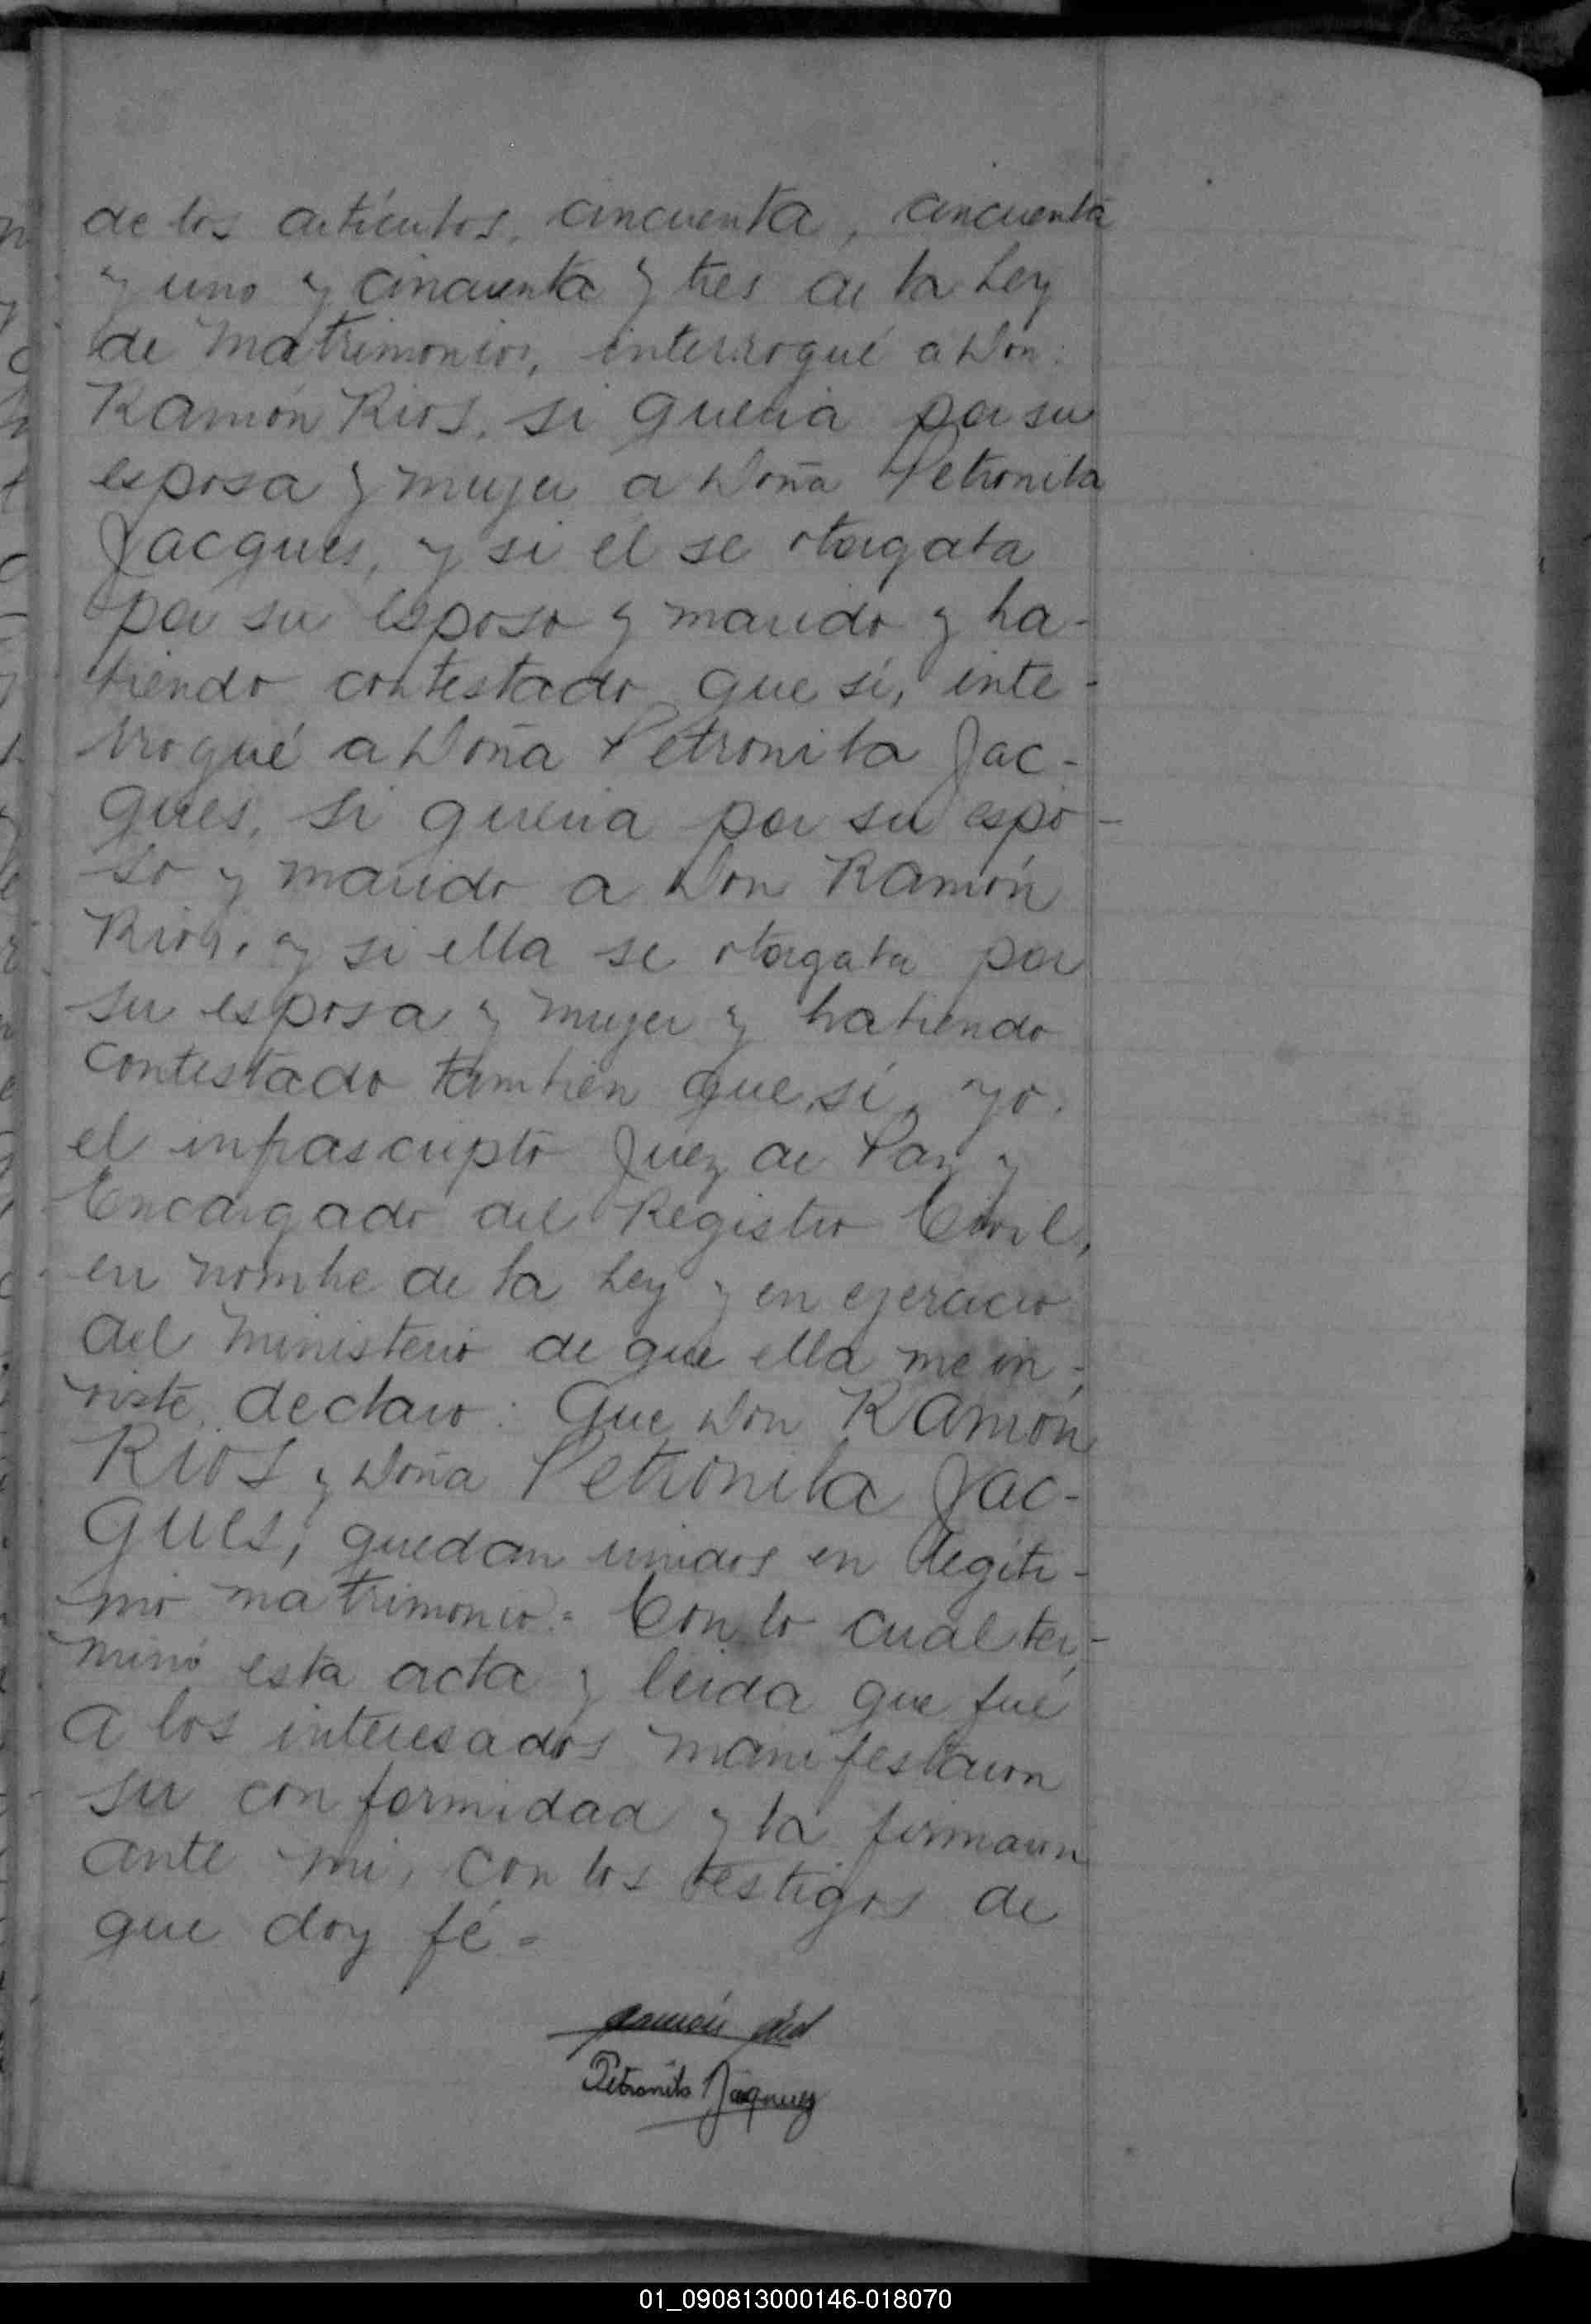 de los artículos, cincuenta, cincuenta
y uno y cincuenta y tres de la Ley
de Matrimonios, interrogué a Don
Ramón Rios, si queria por su
esposa y mujer a Doña Petronila
Jacques, y si él se otorgaba
por su esposo y marido y ha-
biendo contestado que sí, inte-
rrogué a Doña Petronila Jac-
ques, si queria por su espo-
so y marido a Don Ramón
Rios, y si ella se otorgaba por
su esposa y mujer y habiendo
contestado tambien que sí, yo
el infrascripto Juez de Paz y
Encargado del Registro Civil,
en nombre de la Ley y en ejercicio
del Ministerio de que ella me in-
viste, declaro: Que Don Ramón
Rios y Doña Petronila Jac-
ques, quedan unidos en legíti-
mo matrimonio.= Con lo cual ter-
minó esta acta y leida que fué
a los interesados manifestaron
su conformidad y la firmaron
ante mi, con los testigos de
que doy fé =
Ramón Rios
Petronila Jaques
01_090813000146-018070